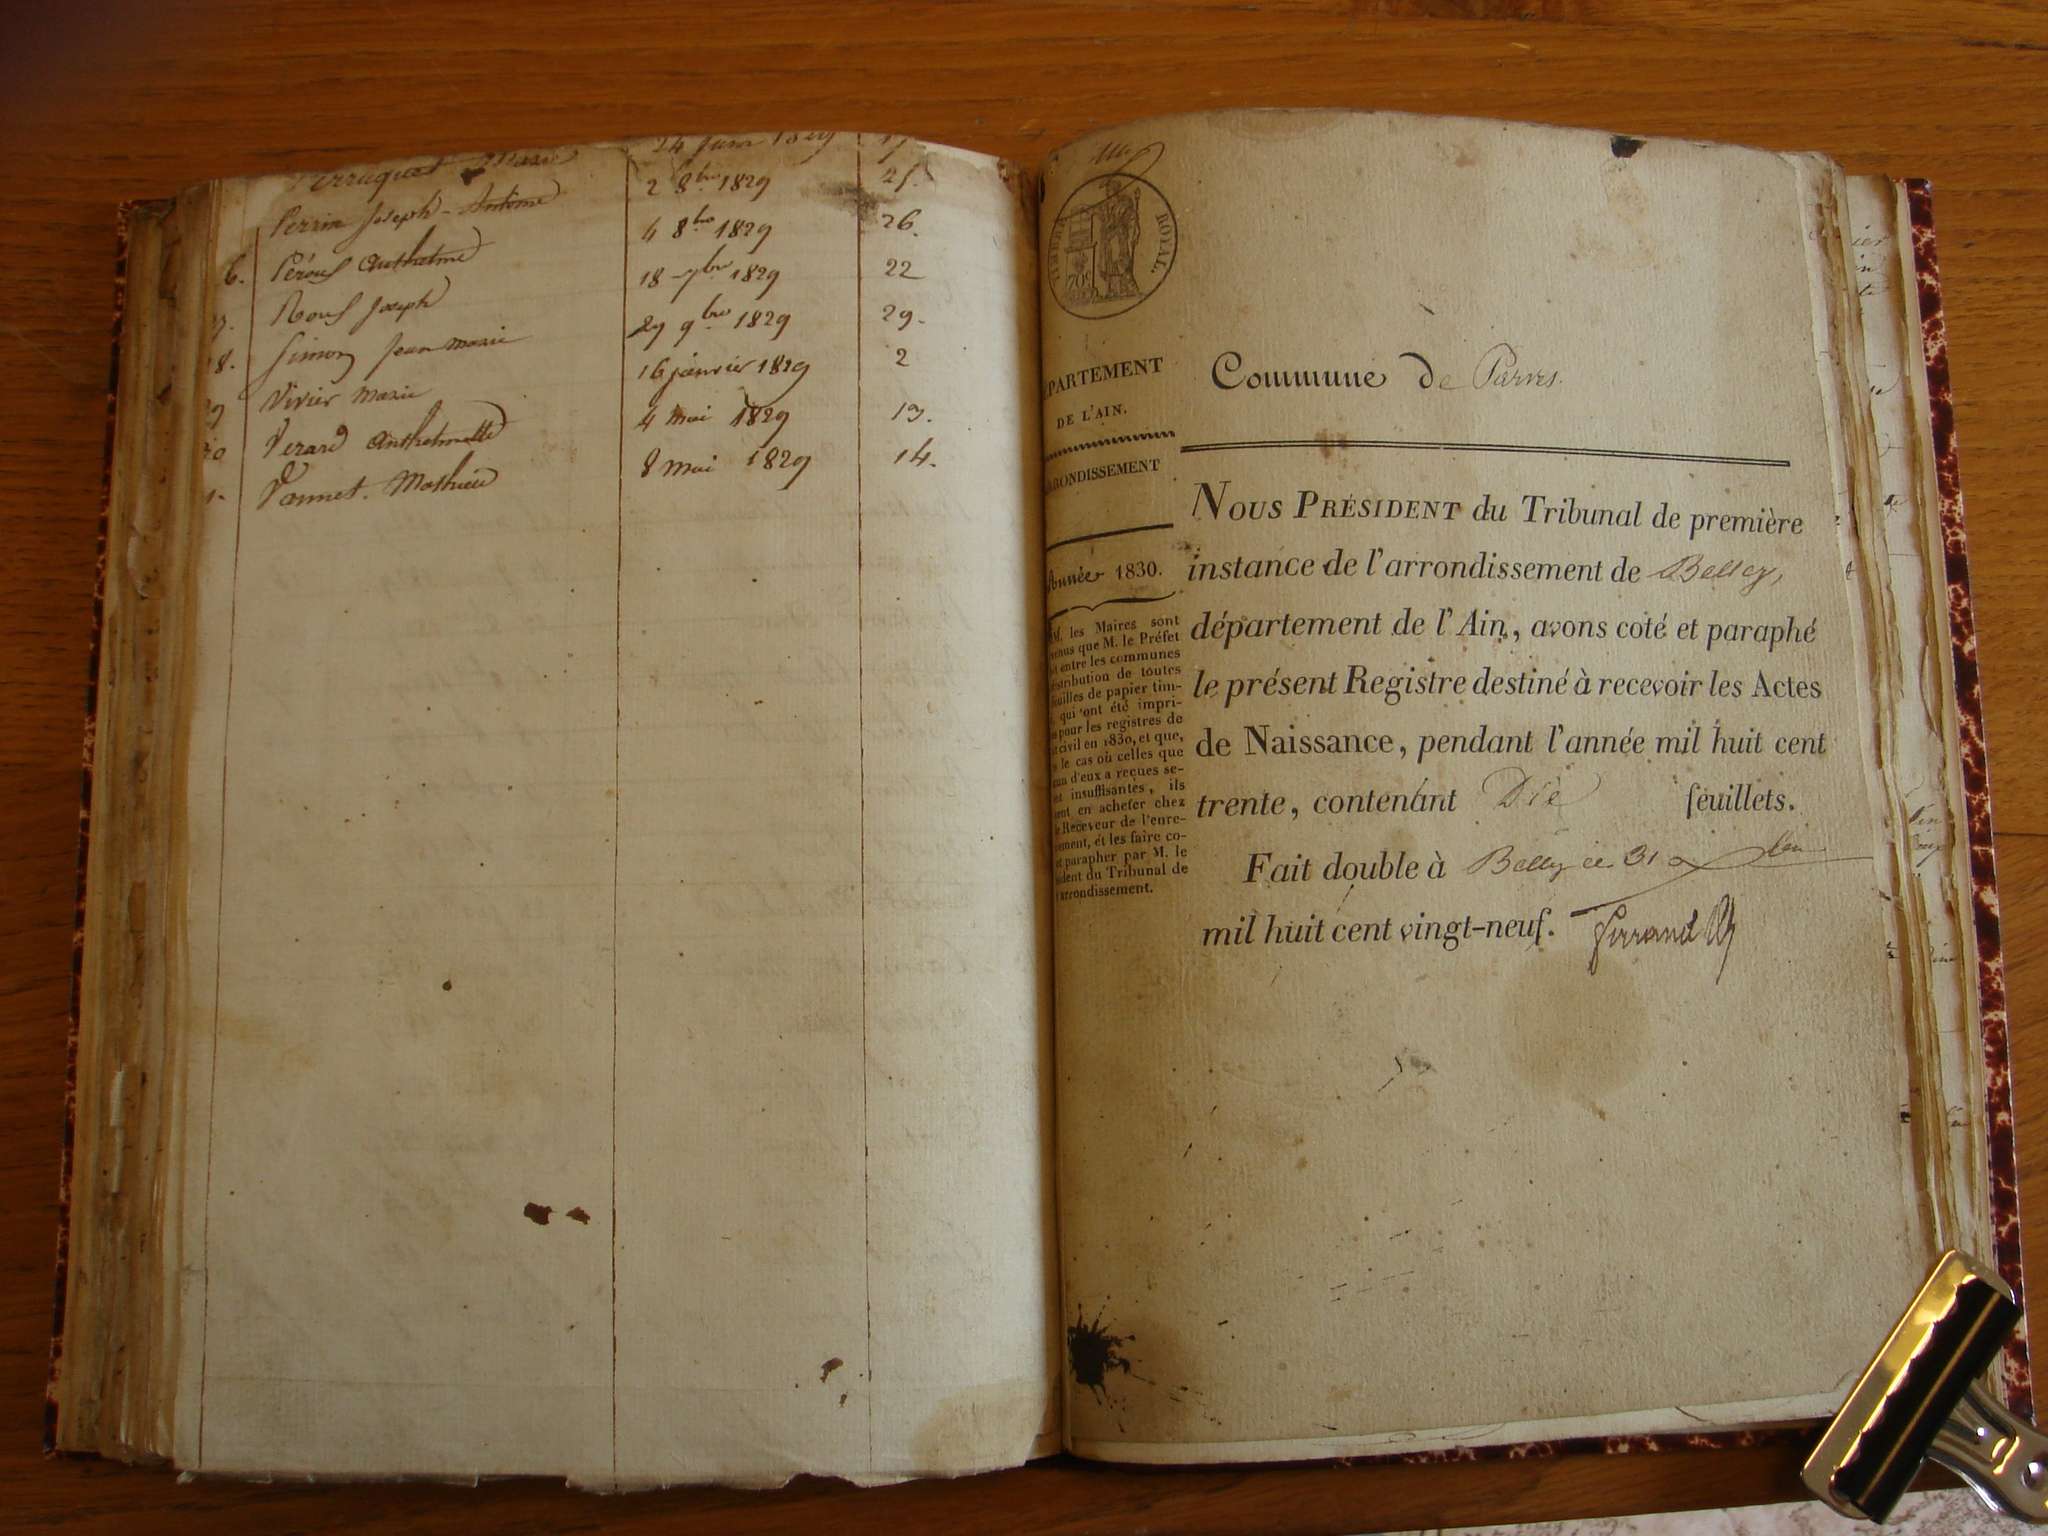 24 juin 1829 17
Perruquet Marie 2 8bre 1829 25.
Perrin Joseph-Antoine 4 8bre 1829 26.
6. Anthelme 18 7bre 1829 22
7. Roux Joseph 29 9bre 1829 29.
8. Simon Jean marie 16 janvier 1829 2
9 Vivier marie 4 mai 1829 13.
30 Verard Anthelmette 8 mai 1829 14.
1. Vonnet. Mathieu
TIMBRE ROYAL.
70c
PARTEMENT
DE L'AIN.
RONDISSEMENT
Année 1830.
M. les Maires sont
enus que M. le Préfet
it entre les communes
istribution de toutes
feuilles de papier tim-
qui ont été impri-
pour les registres de
t civil en 1830, et que,
s le cas où celles que
cun d'eux a reçues se-
nt insuffisantes, ils
ront en acheter chez
le Receveur de l'enre-
ement, et les faire co-
et parapher par M. le
sident du Tribunal de
l'arrondissement.
Commune de Parves.
NOUS PRÉSIDENT du Tribunal de première
instance de l'arrondissement de Belley,
département de l'Ain, avons coté et paraphé
le présent Registre destiné à recevoir les Actes
de Naissance, pendant l'année mil huit cent
trente, contenant Dix feuillets.
Fait double à Belley ce 31 xbre
mil huit cent vingt-neuf. Ferrand